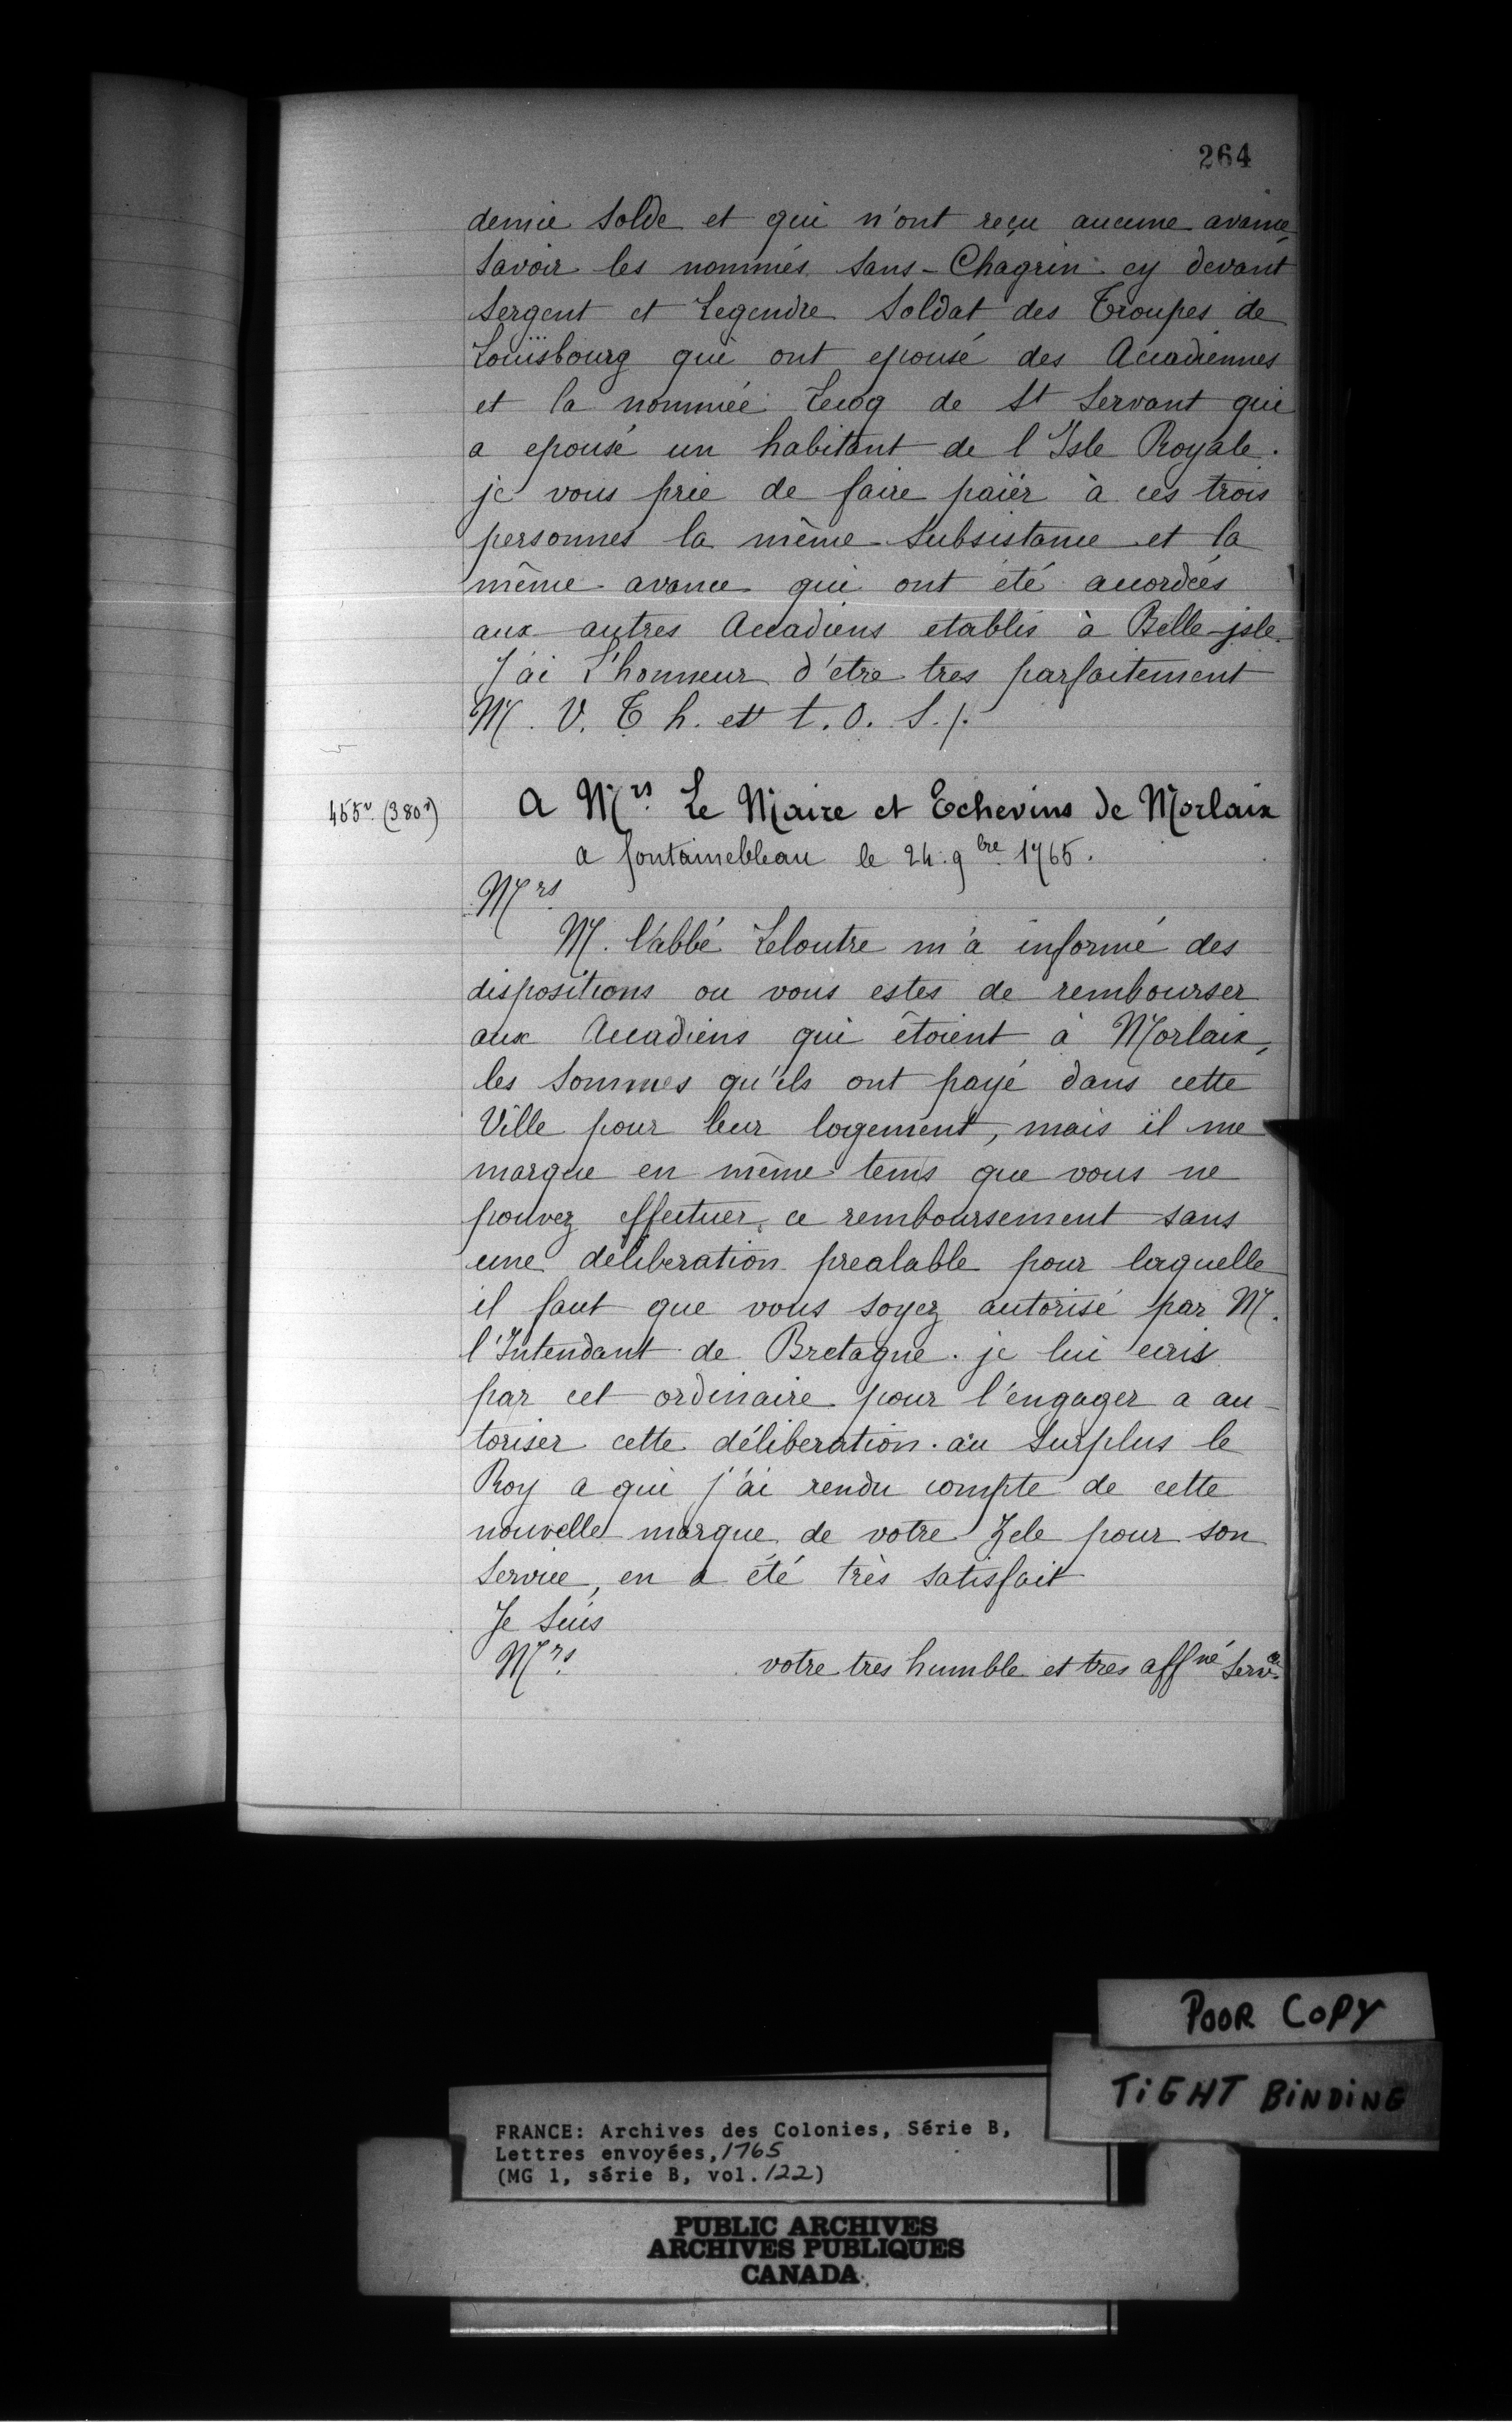 264
demie solde et qui n'ont reçu aucune avance,
savoir les nommés Sans-Chagrin cy devant
Sergent et Legendre Soldat des Troupes de
Louisbourg qui ont epousé des Accadiennes
et la nommée Lecoq de St Servant qui
a epousé un habitant de l'Isle Royale.
je vous prie de faire paiër à ces trois
personnes la même subsistance et la
même avance qui ont été accordées
aux autres Accadiens etablis à Belle-jsle.
J'ai l'honneur d'etre tres parfaitement
M. V. T h. et t. O. S. /.
455v (380v)
A Mrs. Le Maire et Echevins de Morlaix
a fontainebleau le 24. 9bre 1765.
Mrs
M. l'abbé Leloutre m'a informé des
dispositions ou vous estes de rembourser
aux Accadiens qui êtoient à Morlaix,
les sommes qu'ils ont payé dans cette
Ville pour leur logement, mais il me
marque en même tems que vous ne
pouvez effectuer ce remboursement sans
une deliberation prealable pour laquelle
il faut que vous soyez autorisé par M.
l'Intendant de Bretagne. je lui ecris
par cet ordinaire pour l'engager a au-
toriser cette déliberation. au surplus le
Roy a qui j'ai rendu compte de cette
nouvelle marque de votre Zele pour son
Service, en a été très satisfait
Je suis
Mrs.
votre tres humble et tres affné Serv.
POOR COPY
TIGHT BINDING
FRANCE: Archives des Colonies, Série B,
Lettres envoyées, 1765
(MG 1, série B, vol. 122)
PUBLIC ARCHIVES
ARCHIVES PUBLIQUES
CANADA